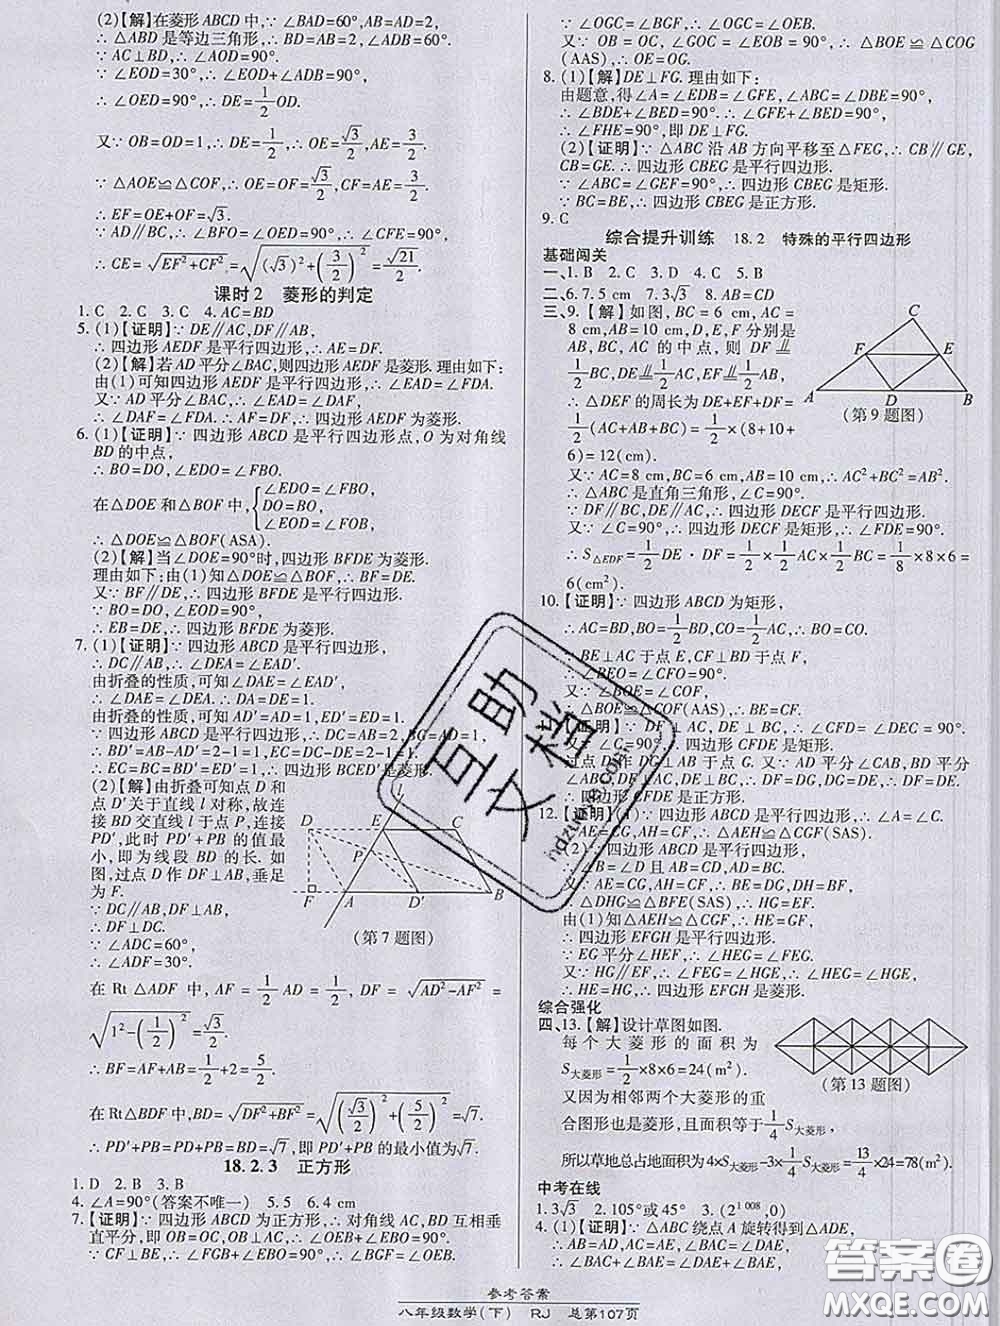 (2)【解】在菱形 ABCD 中,∵∠BAD=60°,AB=AD=2,
∴△ABD 是等边三角形,∴BD=AB=2,∠ADB=60°.
∵AC⊥BD,∴∠AOD=90°.
∵∠EOD=30°,∴∠EOD+∠ADB=90°,
∴∠OED=90°,∴DE=1/2 OD.
又∵OB=OD=1,∴DE=1/2,∴OE=√3/2,∴AE=3/2.
∵△AOE≌△COF,∴OE=OF=√3/2,CF=AE=3/2.
∴EF=OE+OF=√3.
∵AD∥BC,∴∠BFO=∠OED=90°,
∴CE=√(EF²+CF²)=√((√3)²+(3/2)²)=√21/2.
课时2 菱形的判定
1.C 2.C 3.C 4.AC=BD
5.(1)【证明】∵DE∥AC,DF∥AB,
∴四边形 AEDF 是平行四边形,∴AE=DF.
(2)【解】若 AD 平分∠BAC,则四边形 AEDF 是菱形.理由如下:
由(1)可知四边形 AEDF 是平行四边形,∴∠EAD=∠FDA.
又∵AD 平分∠BAC,∴∠EAD=∠DAF,
∴∠DAF=∠FDA.∴AF=DF,∴四边形 AEDF 为菱形.
6.(1)【证明】∵四边形 ABCD 是平行四边形点,O 为对角线
BD 的中点,
∴BO=DO,∠EDO=∠FBO.
在△DOE 和△BOF 中,{∠EDO=∠FBO,
DO=BO,
∠EOD=∠FOB,
∴△DOE≌△BOF(ASA).
(2)【解】当∠DOE=90°时,四边形 BFDE 为菱形.
理由如下:由(1)知△DOE≌△BOF,∴BF=DE.
又∵BF∥DE,∴四边形 BFDE 是平行四边形.
∵BO=DO,∠EOD=90°,
∴EB=DE,∴四边形 BFDE 为菱形.
7.(1)【证明】∵四边形 ABCD 是平行四边形,
∴DC∥AB,∴∠DEA=∠EAD′.
由折叠的性质,可知∠DAE=∠EAD′,
∴∠DAE=∠DEA.∴DA=DE=1.
由折叠的性质,可知 AD′=AD=1,ED′=ED=1.
∵四边形 ABCD 是平行四边形,∴DC=AB=2,BG=AD=1,
∴BD′=AB-AD′=2-1=1,EC=DC-DE=2-1=1.
∴EC=BC=BD′=ED′=1,∴四边形 BCED′是菱形.
(2)【解】由折叠可知点 D 和
点 D′关于直线 l 对称,故连
接 BD 交直线 l 于点 P,连接
PD′,此时 PD′+PB 的值最
小,即为线段 BD 的长.如
图,过点 D 作 DF⊥AB,垂足
为 F.
∵DC∥AB,DF⊥AB,
∴DF⊥DC.
∵∠ADC=60°,
∴∠ADF=30°.
l
D E C
P
F A D′ B
(第7题图)
在 Rt△ADF 中,AF=1/2 AD=1/2,DF=√(AD²-AF²)=
√(1²-(1/2)²)=√3/2.
∴BF=AF+AB=1/2+2=5/2.
在 Rt△BDF 中,BD=√(DF²+BF²)=√((√3/2)²+(5/2)²)=√7,
∴PD′+PB=PD+PB=BD=√7,即 PD′+PB 的最小值为√7.
18.2.3 正方形
1.D 2.B 3.B
4.∠A=90°(答案不唯一) 5.5 6.4 cm
7.【证明】∵四边形 ABCD 为正方形,∴对角线 AC,BD 互相垂
直平分,即 OB=OC,OB⊥AC,∴∠OEB+∠EBO=90°.
∵CF⊥BE,∴∠FGB+∠EBO=90°,∴∠BGF=∠OEB.
∵∠OGC=∠BGF,∴∠OGC=∠OEB.
又∵OB=OC,∠GOC=∠EOB=90°,∴△BOE≌△COG
(AAS),∴OE=OG.
8.(1)【解】DE⊥FG.理由如下:
由题意,得∠A=∠EDB=∠GFE,∠ABC=∠DBE=90°,
∴∠BDE+∠BED=90°.∴∠GFE+∠BED=90°,
∴∠FHE=90°,即 DE⊥FG.
(2)【证明】∵△ABC 沿 AB 方向平移至△FEG,∴CB∥GE,
CB=GE.∴四边形 CBEG 是平行四边形.
∵∠ABC=∠GEF=90°,∴四边形 CBEG 是矩形.
∵BC=BE,∴四边形 CBEG 是正方形.
9.C
综合提升训练 18.2 特殊的平行四边形
基础闯关
一、1.B 2.C 3.C 4.C 5.B
二、6.7.5 cm 7.3√3 8.AB=CD
三、9.【解】如图,BC=6 cm,AC=
8 cm,AB=10 cm,D,E,F 分别是
AB,BC,AC 的中点,则 DF∥=
1/2 BC,DE∥=1/2 AC,EF∥=1/2 AB,
∴△DEF 的周长为 DE+EF+DF=
1/2(AC+AB+BC)=1/2×(8+10+
6)=12(cm).
C
F E
A D B
(第9题图)
又∵AC=8 cm,BC=6 cm,AB=10 cm,∴AC²+BC²=AB².
∴△ABC 是直角三角形,∠C=90°.
∵DF∥BC,DE∥AC,∴四边形 DECF 是平行四边形.
又∵∠C=90°,∴四边形 DECF 是矩形,∴∠FDE=90°.
∴S△EDF=1/2 DE·DF=1/2×1/2 AC×1/2 BC=1/8×8×6=
6(cm²).
10.【证明】∵四边形 ABCD 为矩形,
∴AC=BD,BO=1/2 BD,CO=1/2 AC,∴BO=CO.
∵BE⊥AC 于点 E,CF⊥BD 于点 F,
∴∠BEO=∠CFO=90°.
又∵∠BOE=∠COF,
∴△BOE≌△COF(AAS),∴BE=CF.
【证明】∵DF⊥AC,DE⊥BC,∴∠CFD=∠DEC=90°.
又∵∠C=90°,∴四边形 CFDE 是矩形.
过点 D 作 DG⊥AB 于点 G.又∵AD 平分∠CAB,BD 平分
∠ABC,DF⊥AC,DE⊥BC,∴DF=DG,DG=DE,∴DF=DE,
∴四边形 CFDE 是正方形.
12.【证明】(1)∵四边形 ABCD 是平行四边形,∴∠A=∠C.
∵AE=CG,AH=CF,∴△AEH≌△CGF(SAS).
(2)∵四边形 ABCD 是平行四边形,
∴∠B=∠D 且 AB=CD,AD=BC.
∵AE=CG,AH=CF,∴BE=DG,DH=BF,
∴△DHG≌△BFE(SAS),∴HG=EF.
由(1)知△AEH≌△CGF,∴HE=GF.
∴四边形 EFGH 是平行四边形.
∵EG 平分∠HEF,∴∠HEG=∠FEG.
又∵HG∥EF,∴∠FEG=∠HGE,∴∠HEG=∠HGE,
∴HE=HG,∴四边形 EFGH 是菱形.
综合强化
四、13.【解】设计草图如图.
每个大菱形的面积为
S大菱形=1/2×8×6=24(m²).
又因为相邻两个大菱形的重
(第13题图)
合图形也是菱形,且面积等于1/4 S大菱形,
所以草地总占地面积 4×S大菱形-3×1/4 S大菱形=13/4×24=78(m²).
中考在线
1.3√3 2.105°或45° 3.(2^1 008,0)
4.(1)【证明】∵△ABC 绕点 A 旋转得到△ADE,
∴AB=AD,AC=AE,∠BAC=∠DAE,
参考答案
八年级数学(下) RJ 总第107页
互助
文档
答案圈
MXQE.COM